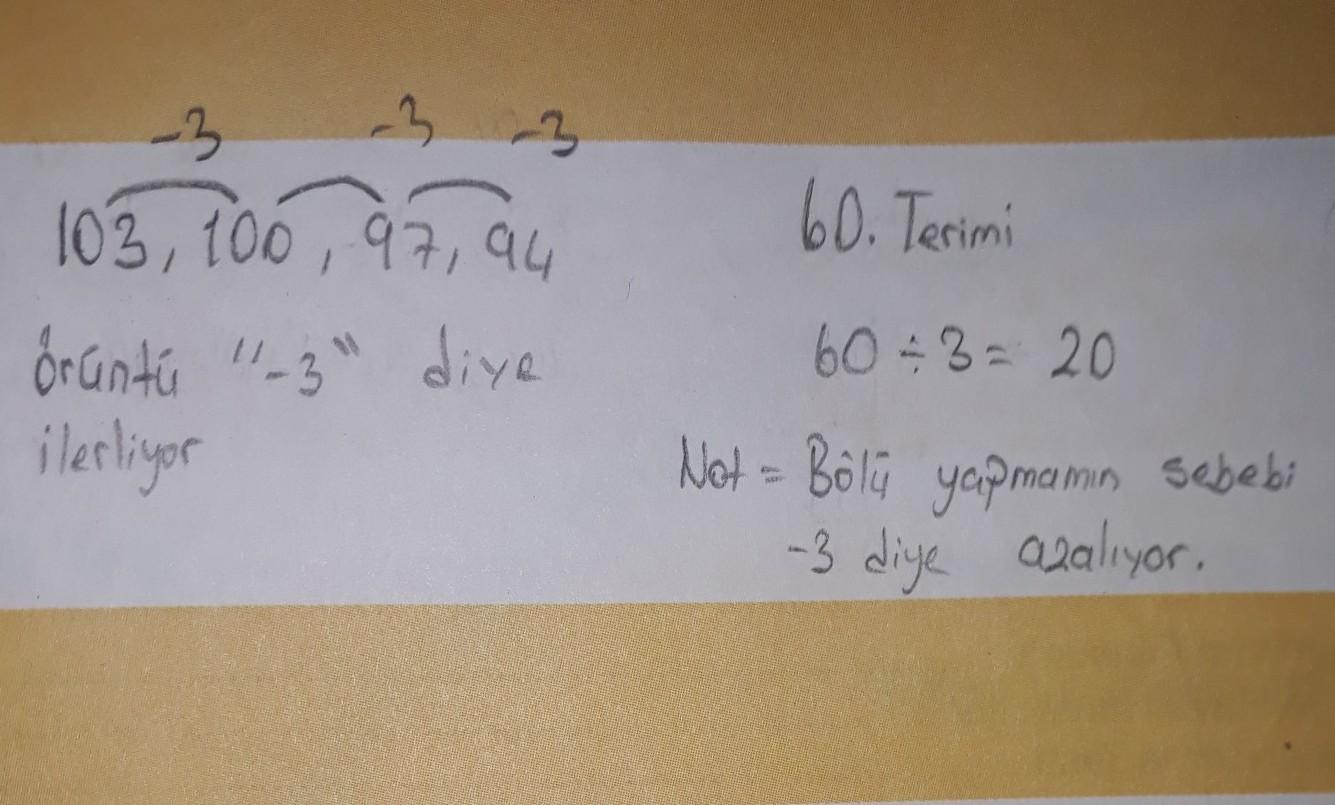 -3 -3 -3
103, 100, 97, 94
Örüntü "-3" diye
ilerliyor
60. Terimi
60 ÷ 3 = 20
Not = Bölü yapmamın sebebi
-3 diye azalıyor.